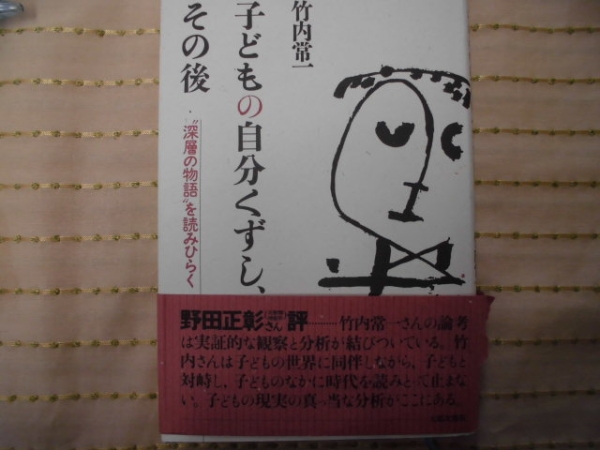 竹内常一
子どもの自分くずし、
その後
"深層の物語"を読みひらく
野田正彰さん評………竹内常一さんの論考
は実証的な観察と分析が結びついている。竹
内さんは子どもの世界に同伴しながら、子どもと
対峙し、子どものなかに時代を読みとって止まな
い。子どもの現実の真っ当な分析がここにある。